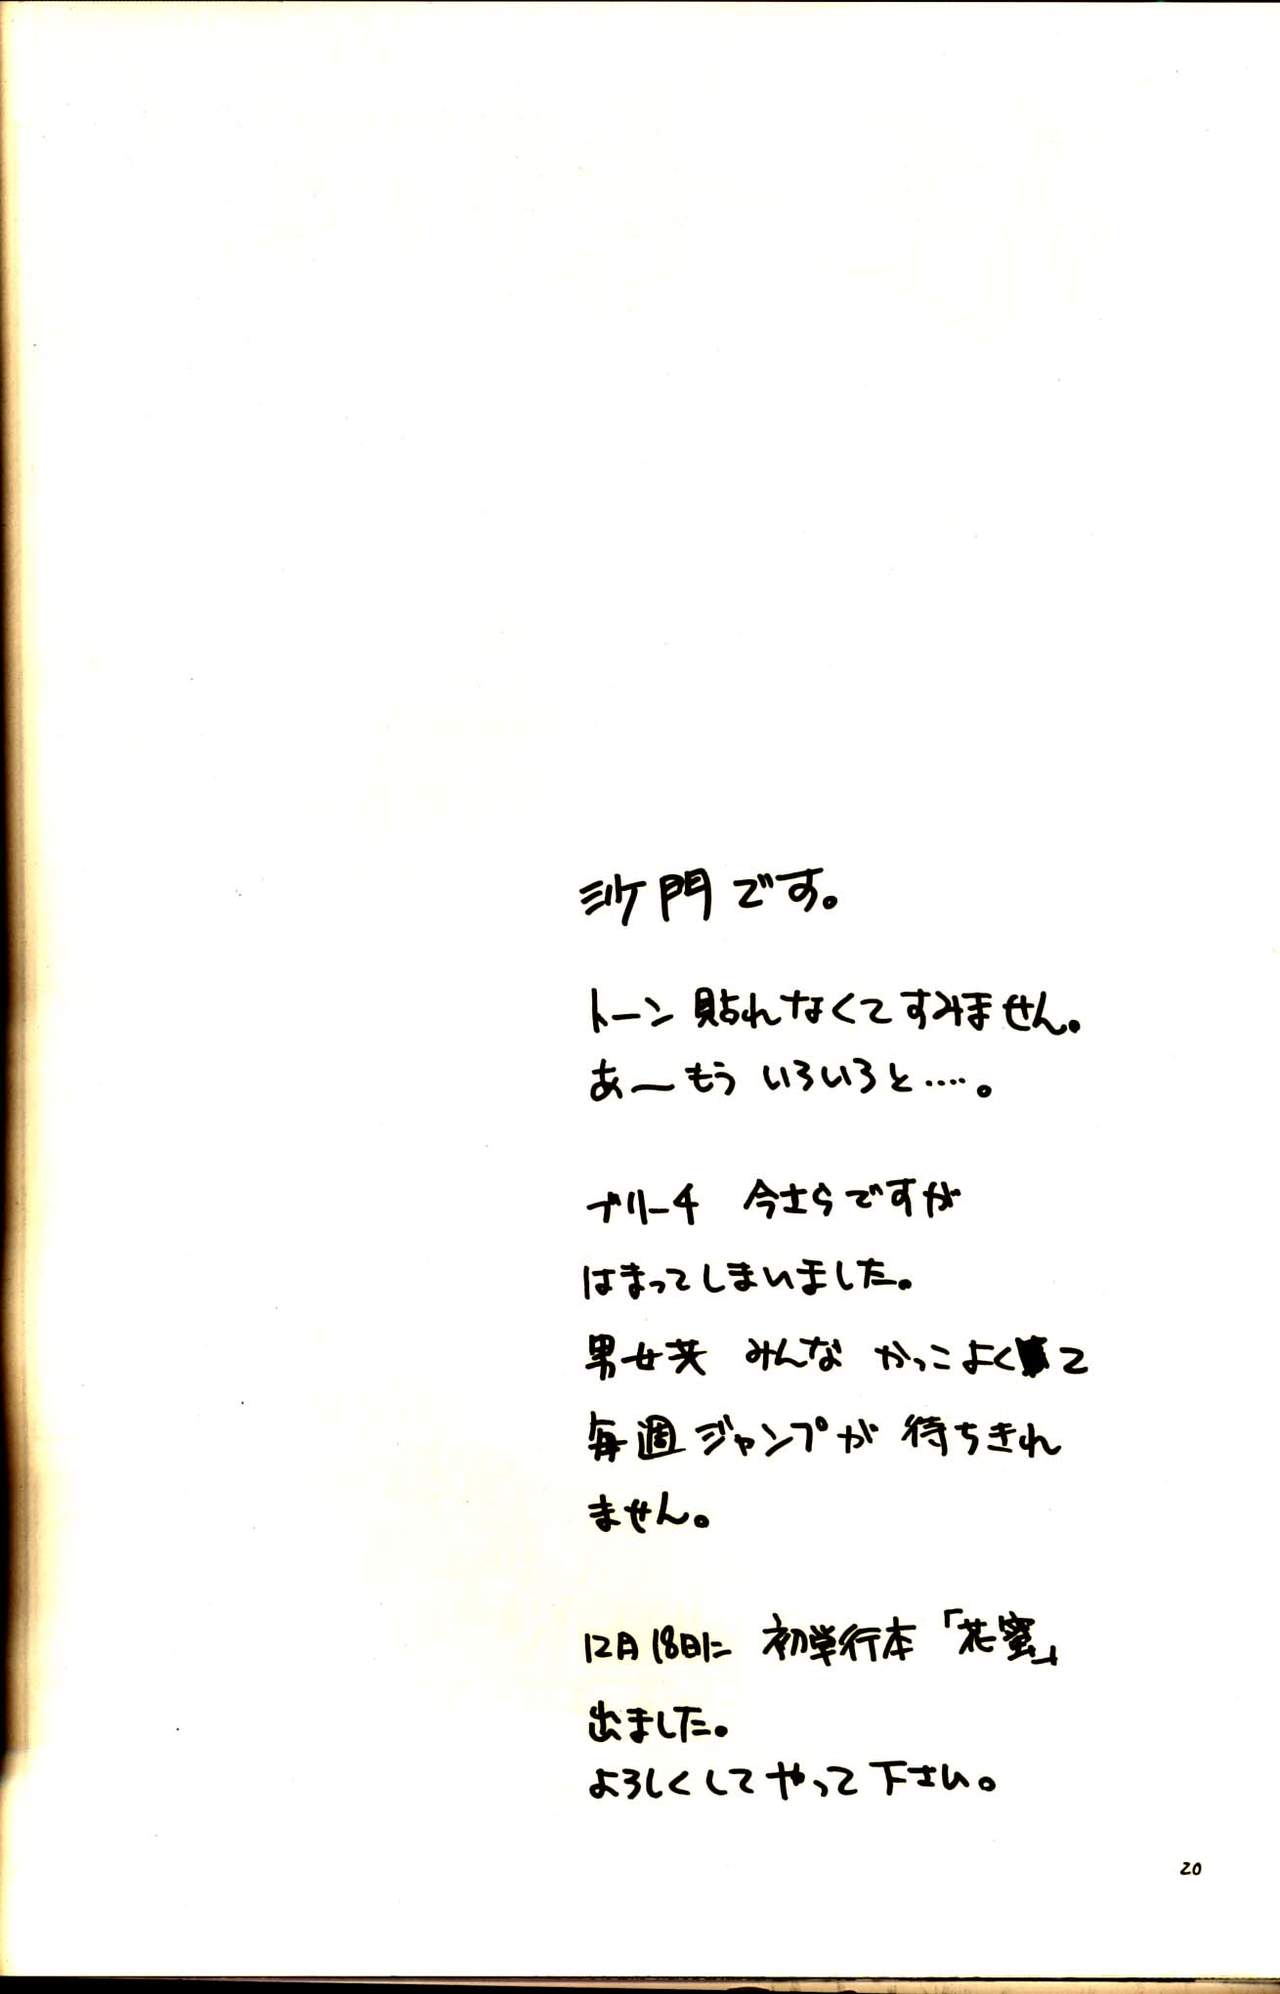 沙門です。
トーン貼れなくてすみません。
あ〜もう いろいろと…..。
ブリーチ 今さらですが
はまってしまいました。
男女共 みんな かっこよくて
毎週ジャンプが 待ちきれ
ません。
12月18日に 初単行本「花蜜」
出ました。
よろしくしてやって下さい。
20